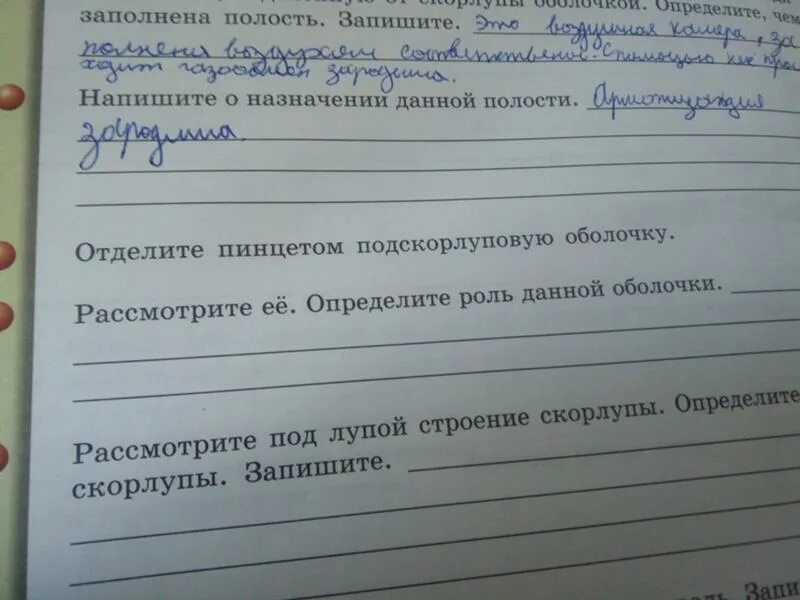 скорлупы оболочкой. Определите, чем
заполнена полость. Запишите. Это воздушная камера, за
полнена воздухом соответственно. С помощью неё прои
ходит газообмен зародыша.
Напишите о назначении данной полости.
зародыша.
Отделите пинцетом подскорлуповую оболочку.
Рассмотрите её. Определите роль данной оболочки.
Рассмотрите под лупой строение скорлупы. Определите
скорлупы. Запишите.
Запи